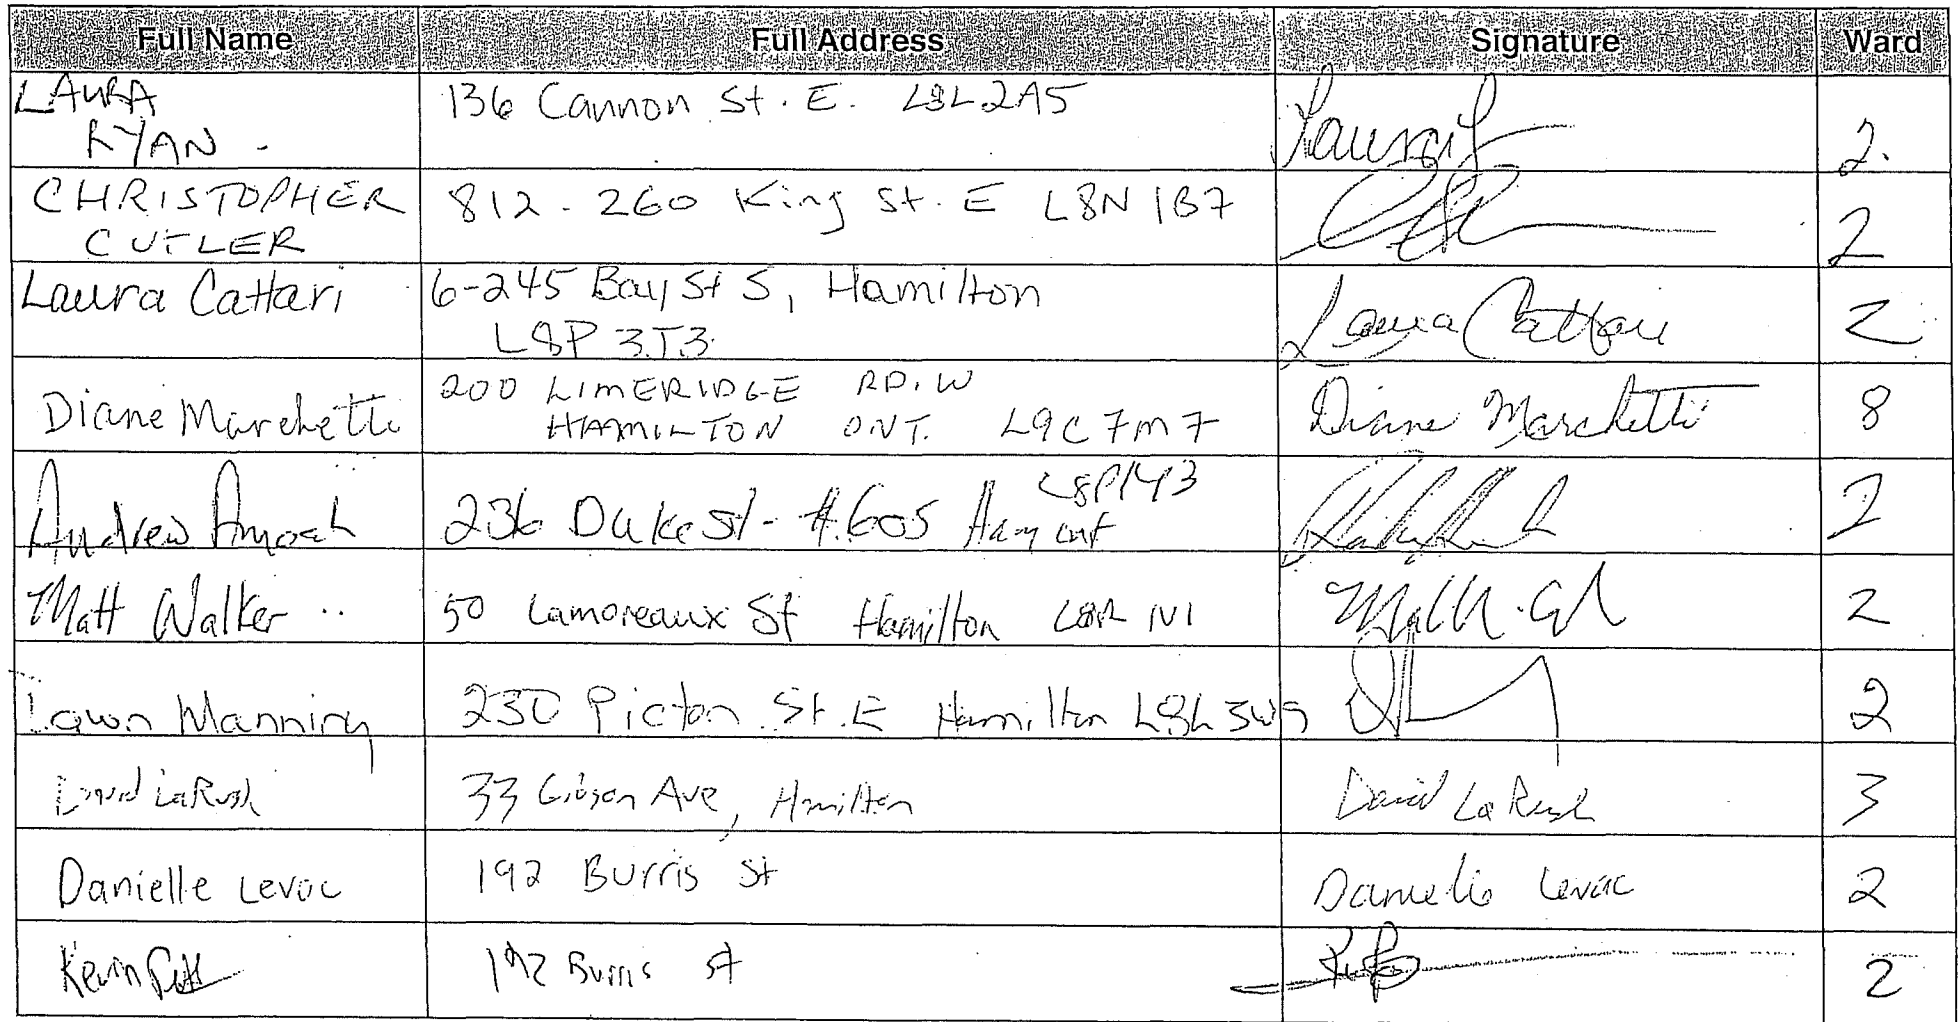 Full Name Full Address Signature Ward
LAURA 136 Cannon St. E. L8L2A5
RYAN 2.
CHRISTOPHER 812 - 260 King St. E L8N 1B7
CUTLER 2
Laura Cattari 6-245 Bay St S, Hamilton Laura Cattari 2
L8P 3T3
Diane Marchetti 200 LIMERIDGE RD. W Diane Marchetti 8
HAMILTON ONT. L9C 7M7
L8P1Y3
Andrew 236 Duke St - #605 Ham ont 2
Matt Walker 50 Lamoreaux St Hamilton L8R 1V1 2
Dawn Manning 230 Picton St. E Hamilton L8L 3W9 2
David LaRush 33 Gibson Ave, Hamilton David LaRush 3
Danielle Levac 192 Burris St Danielle Levac 2
Kevin 192 Burris St 2